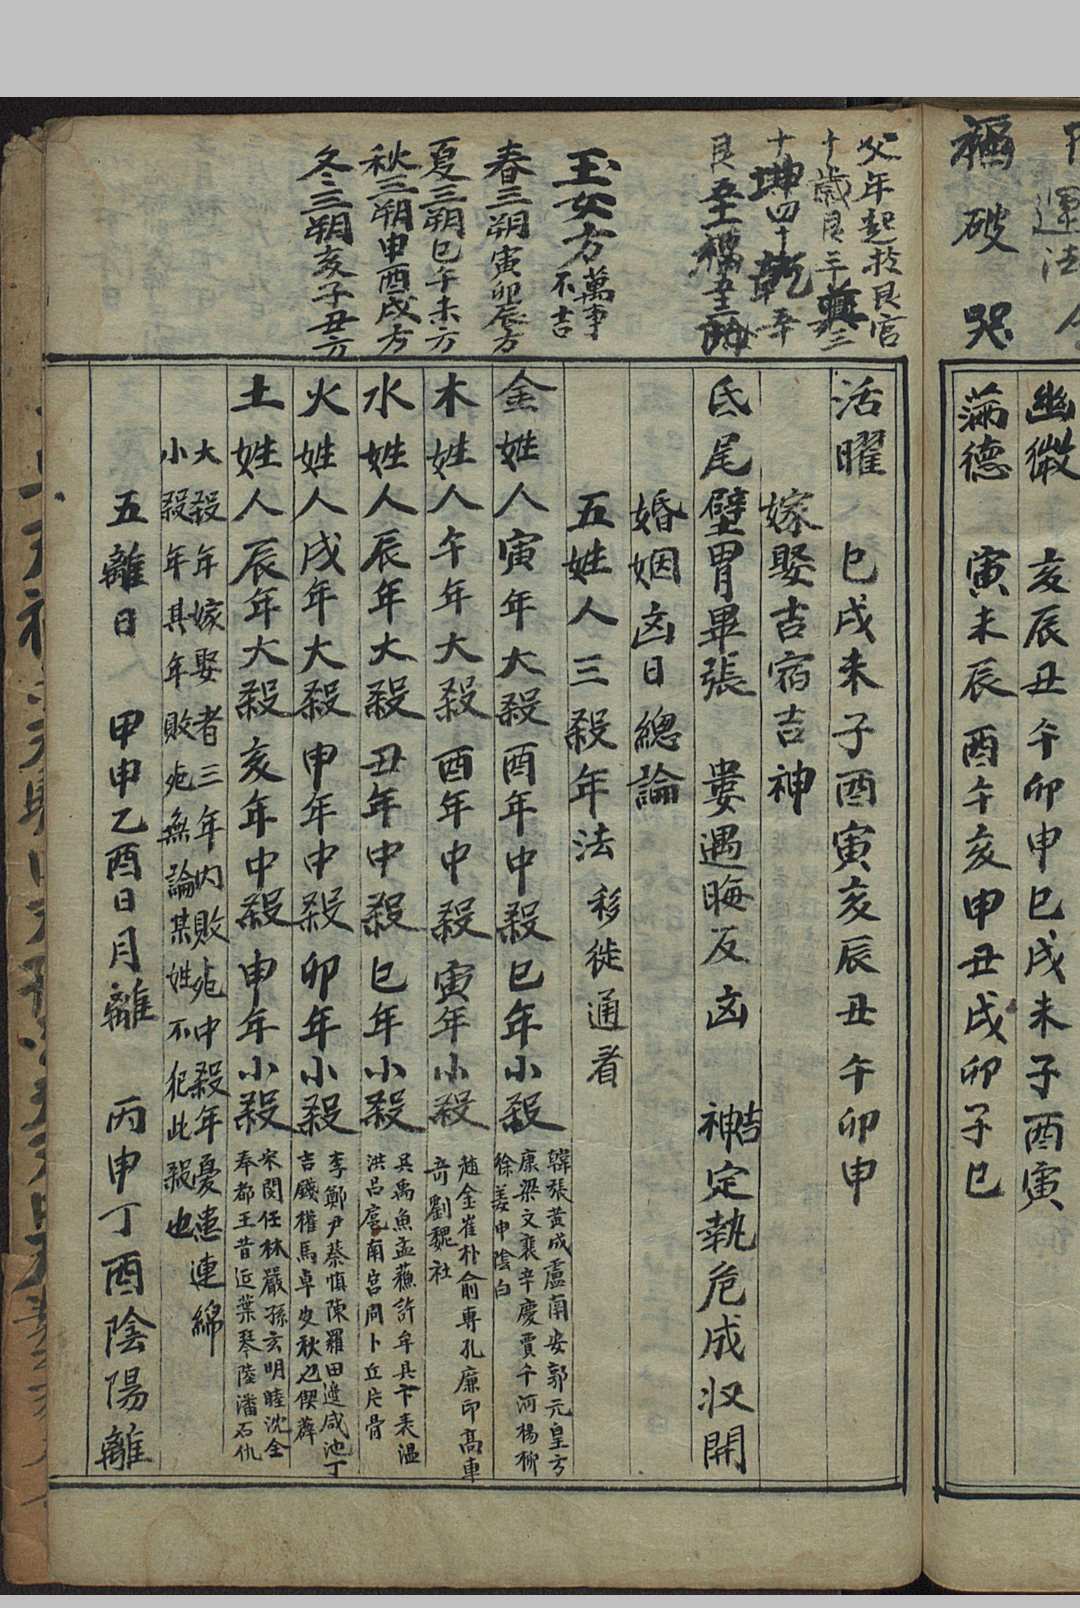 福破哭
運法
幽微 亥辰丑午卯申巳戌未子酉寅
滿德 寅未辰酉午亥申丑戌卯子巳
父年起於艮宮
十歲艮三巽三
十坤四十乾五
玉女方 萬事
不吉
春三朔寅卯辰方
夏三朔巳午未方
秋三朔申酉戌方
冬三朔亥子丑方
活曜 巳戌未子酉寅亥辰丑午卯申
嫁娶吉宿吉神
氐尾壁胃畢張 婁遇晦反凶 吉神定執危成收開
婚姻凶日總論
五姓人三殺年法 移徙通看
金姓人寅年大殺酉年中殺巳年小殺 韓張黃成盧南安郭元皇方
康梁文裵辛慶賈千河楊柳
徐姜申陰白
木姓人午年大殺酉年中殺寅年小殺 趙金崔朴俞專孔廉印高車
奇劉魏社
水姓人辰年大殺丑年中殺巳年小殺 吳禹魚孟蘓許牟具卞表溫
洪呂扈南宮周卜丘片骨
火姓人戌年大殺申年中殺卯年小殺 李鄭尹蔡愼陳羅田邊咸池丁
吉錢權馬卓皮秋也偰薛
土姓人辰年大殺亥年中殺申年小殺 宋閔任林嚴孫玄明睦沈仝
奉都王昔近葉琴陸潘石仇
大殺年嫁娶者三年內敗死中殺年憂患連綿
小殺年其年敗死無論某姓不犯此殺也
五離日 甲申乙酉日月離 丙申丁酉陰陽離